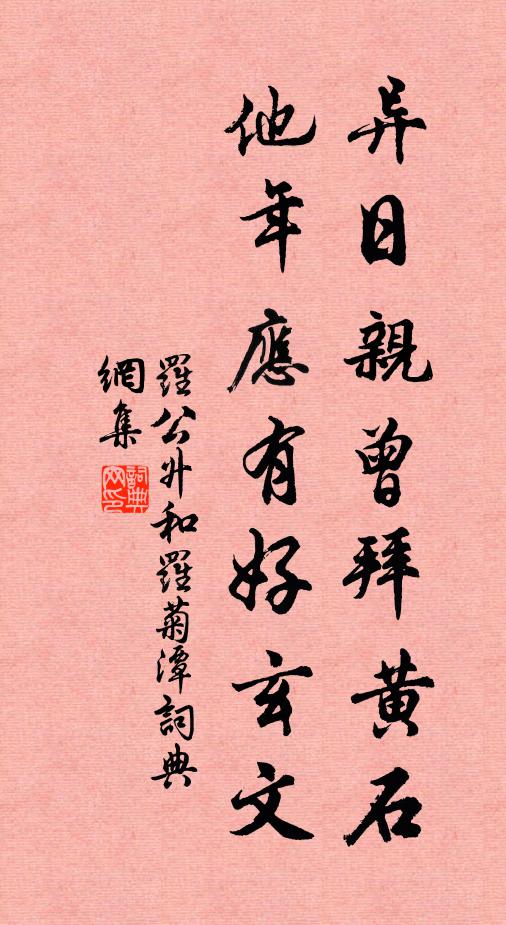 异日親曾拜黄石
他年應有好玄文
羅公升和羅菊潭詞典
網集
詞典網印